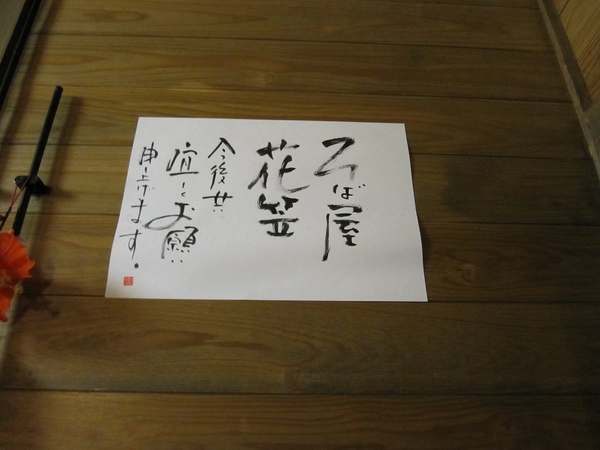 そば屋
花笠
今後共
宜しくお願い
申し上げます。